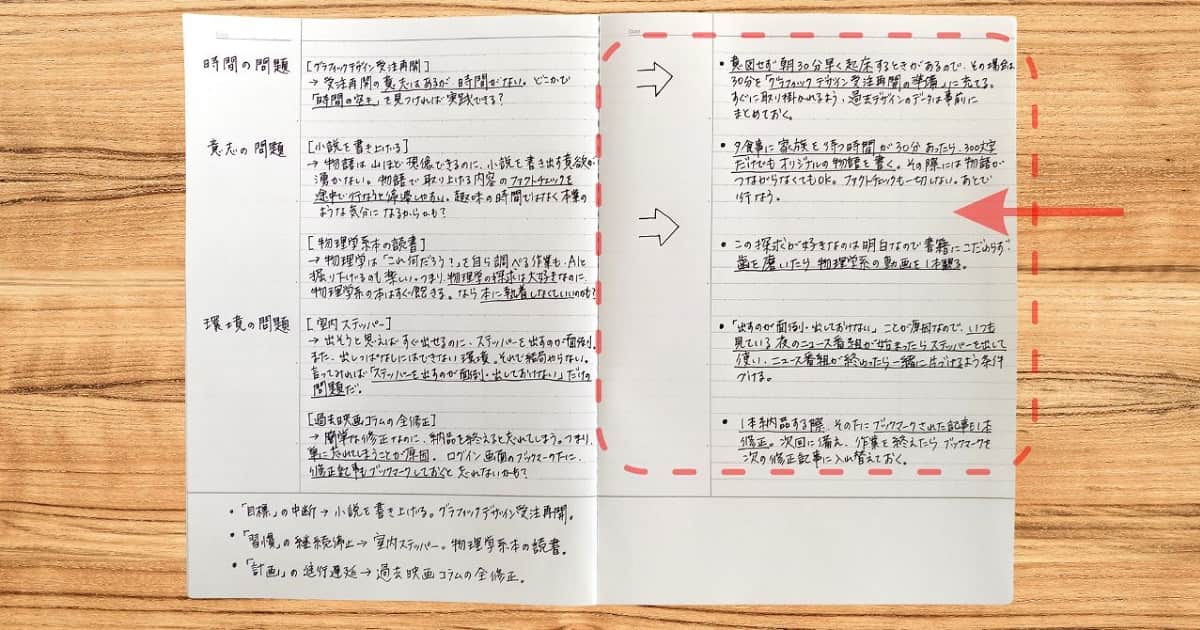 時間の問題
[グラフィックデザイン受注再開]
→ 受注再開の意志はあるが時間がない。どこかで
「時間の空き」を見つければ実践できる?
意志の問題
[小説を書き上げる]
→ 物語は山ほど想像できるのに、小説を書き出す意欲が
湧かない。物語で取り上げる内容のファクトチェックを
途中で行なうと停滞しやすい。趣味の時間ではなく本業の
ような気分になるからかも?
[物理学系本の読書]
→ 物理学は「これ何だろう?」を自ら調べる作業も、AIと
掘り下げるのも楽しい。つまり、物理学の探求は大好きなのに、
物理学系の本はすぐ飽きる。なら本に執着しなくていいのかも?
環境の問題
[室内ステッパー]
→ 出そうと思えばすぐ出せるのに、ステッパーを出すのが面倒。
また、出しっぱなしにはできない環境。それで結局やらない。
言ってみれば「ステッパーを出すのが面倒・出しておけない」だけの
問題だ。
[過去映画コラムの全修正]
→ 簡単な修正なのに、納品を終えると忘れてしまう。つまり、
単に忘れてしまうことが原因。ログイン画面のブックマークの下に、
修正記事もブックマークしておくと忘れないかも?
・「目標」の中断 → 小説を書き上げる。グラフィックデザイン受注再開。
・「習慣」の継続停止 → 室内ステッパー。物理学系本の読書。
・「計画」の進行遅延 → 過去映画コラムの全修正。
・意図せず朝30分早く起床するときがあるので、その場合は
30分を「グラフィックデザイン受注再開の準備」に充てる。
すぐに取り掛かれるよう、過去デザインのデータは事前に
まとめておく。
・夕食事に家族を待つ時間が30分あったら、300文字
だけでもオリジナルの物語を書く。その際には物語が
つながらなくてもOK。ファクトチェックも一切しない。あとで
行なう。
・この探求が好きなのは明白なので書籍にこだわらず
歯を磨いたら物理学系の動画を1本観る。
・「出すのが面倒・出しておけない」ことが原因なので、いつも
見ている夜のニュース番組が始まったらステッパーを出して
使い、ニュース番組が終わったら一緒に片づけるよう条件
づける。
・1本納品する際、その下にブックマークされた記事も1本
修正。次回に備え、作業を終えたらブックマークを
次の修正記事に入れ替えておく。